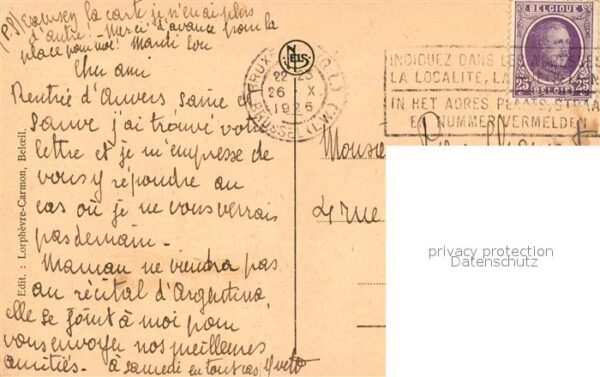 (PS) Excusez la carte je n'en ai plus
d'autre! Merci d'avance from la
place pour moi! Mardi
Cher ami
Rentrée d'Anvers saine et
sauve j'ai trouvé votre
lettre et je m'empresse de
vous y répondre au
cas où je ne vous verrais
pas demain -
Maman ne viendra pas
au récital d'Argentina,
elle se joint à moi pour
vous envoyer nos meilleures
amitiés. - à samedi en tout cas Yvette
Edit. : Lorphèvre-Carmon, Belœil.
NELS
22-23
26 X
1926
BRUSSEL (1)
INDIQUEZ DANS LES
LA LOCALITÉ, LA
IN HET ADRES PLAATS, STRAAT
EN NUMMER VERMELDEN
BELGIQUE
25 25
BELGIË
Monsieur
4 rue
privacy protection
Datenschutz